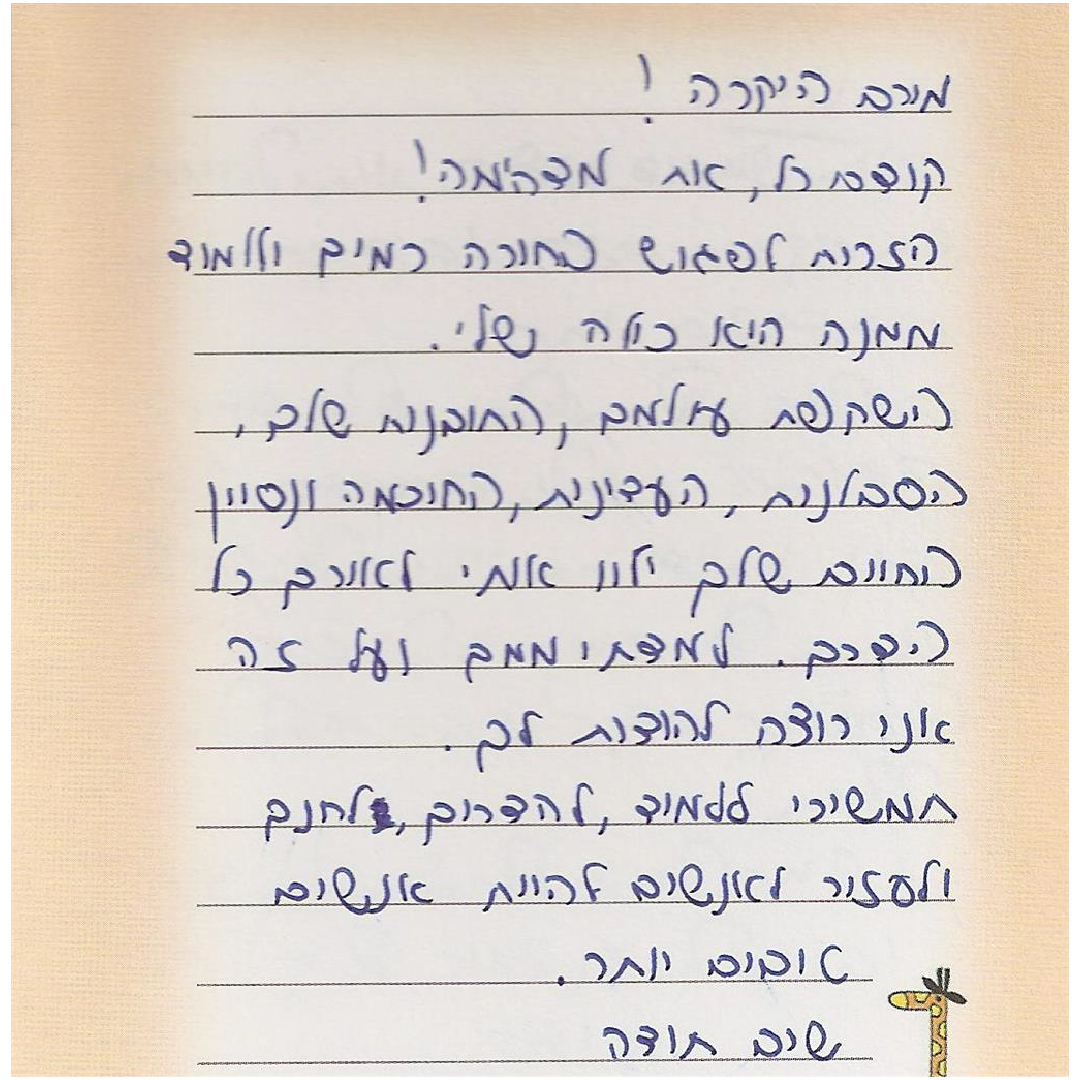 מירב היקרה!
קודם כל, את מדהימה!
הזכות לפגוש בחורה כמוך וללמוד
ממנה היא כולה שלי.
השקפת עולמך, התובנות שלך,
הסבלנות, העדינות, החוכמה ונסיון
החיים שלך ילוו אותי לאורך כל
הדרך. למדתי ממך ועל זה
אני רוצה להודות לך.
תמשיכי ללמוד, להדריך, לחנך
ולעזור לאנשים להיות אנשים
טובים יותר.
שוב תודה